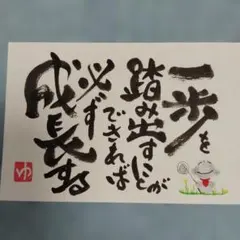 一歩を
踏み出すことが
できれば
必ず
成長する
ゆ